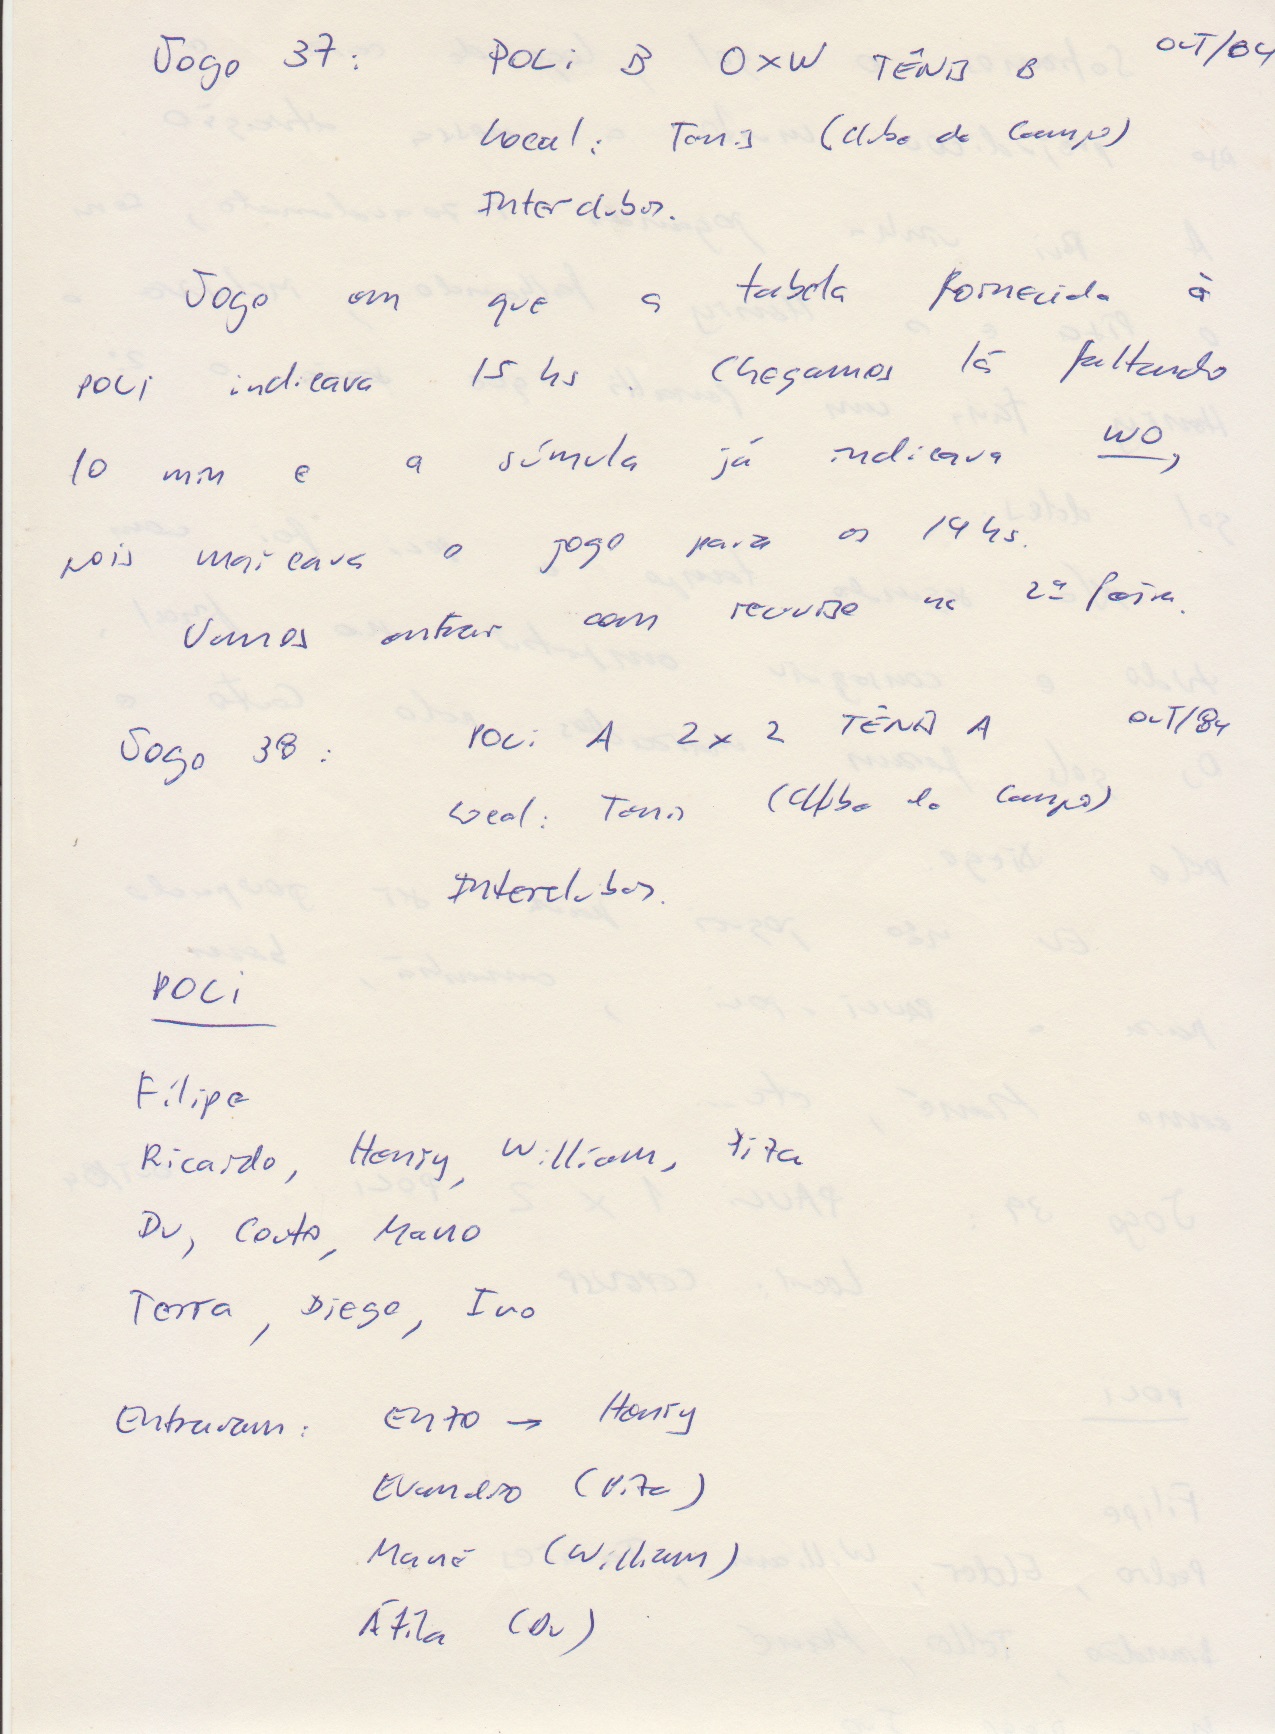 Jogo 37: POLI B 0xW TÊNIS B OUT/84
Local: Tenis (Clube de Campo)
Interclubes.
Jogo em que a tabela fornecida à
POLI indicava 15 hs. Chegamos lá faltando
10 min e a súmula já indicava WO,
pois marcava o jogo para as 14 hs.
Vamos entrar com recurso na 2ª feira.
Jogo 38: POLI A 2x2 TÊNIS A OUT/84
Local: Tenis (Clube de Campo)
Interclubes.
POLI
Filipe
Ricardo, Henry, William, Pita
Du, Couto, Mano
Terra, Diego, Ivo
Entraram: Enzo → Henry
Evandro (Pita)
Mané (William)
Átila (Du)